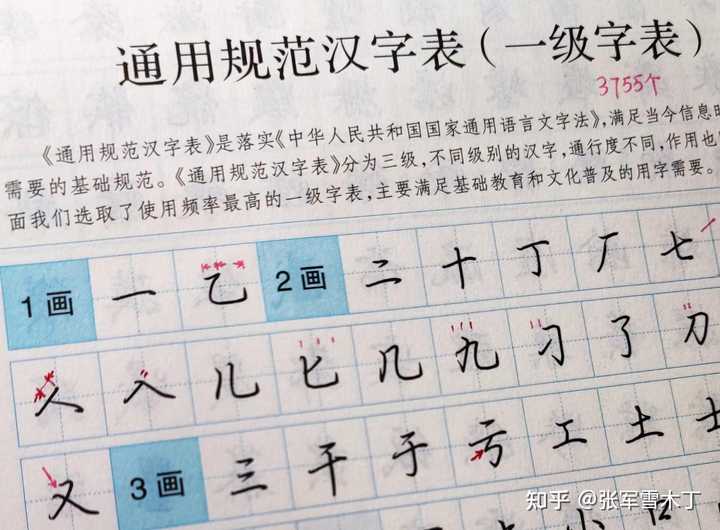 通用规范汉字表(一级字表)
3755个
《通用规范汉字表》是落实《中华人民共和国国家通用语言文字法》,满足当今信息
需要的基础规范。《通用规范汉字表》分为三级,不同级别的汉字,通行度不同,作用也
面我们选取了使用频率最高的一级字表,主要满足基础教育和文化普及的用字需要。
1画 一 乙 2画 二 十 丁 厂 七
人 入 儿 匕 几 九 刁 了 刀
又 3画 三 干 于 亏 工 土 士
知乎 @张军雪木丁